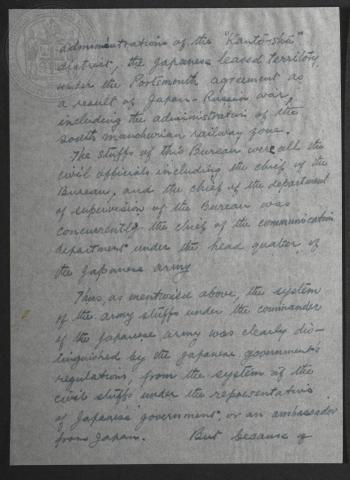 administrations of the "Kantō-shū"
district, the Japanese leased territory
under the Portsmouth agreement as
a result of Japan-Russia war,
including the administration of the
South Manchurian railway zone.
The stuffs of this Bureau were all the
civil officials including the chief of the
Bureau, and the chief of the department
of supervision of the Bureau was
concurrently the chief of the communication
department under the head quater of
the Japanese army.
Thus, as mentioned above, the system
of the army stuffs under the commander
of the Japanese army was clearly dis-
tinguished by the Japanese government's
regulation, from the system of the
civil stuffs under the representative
of Japanese government, or an ambassador
from Japan. But because of